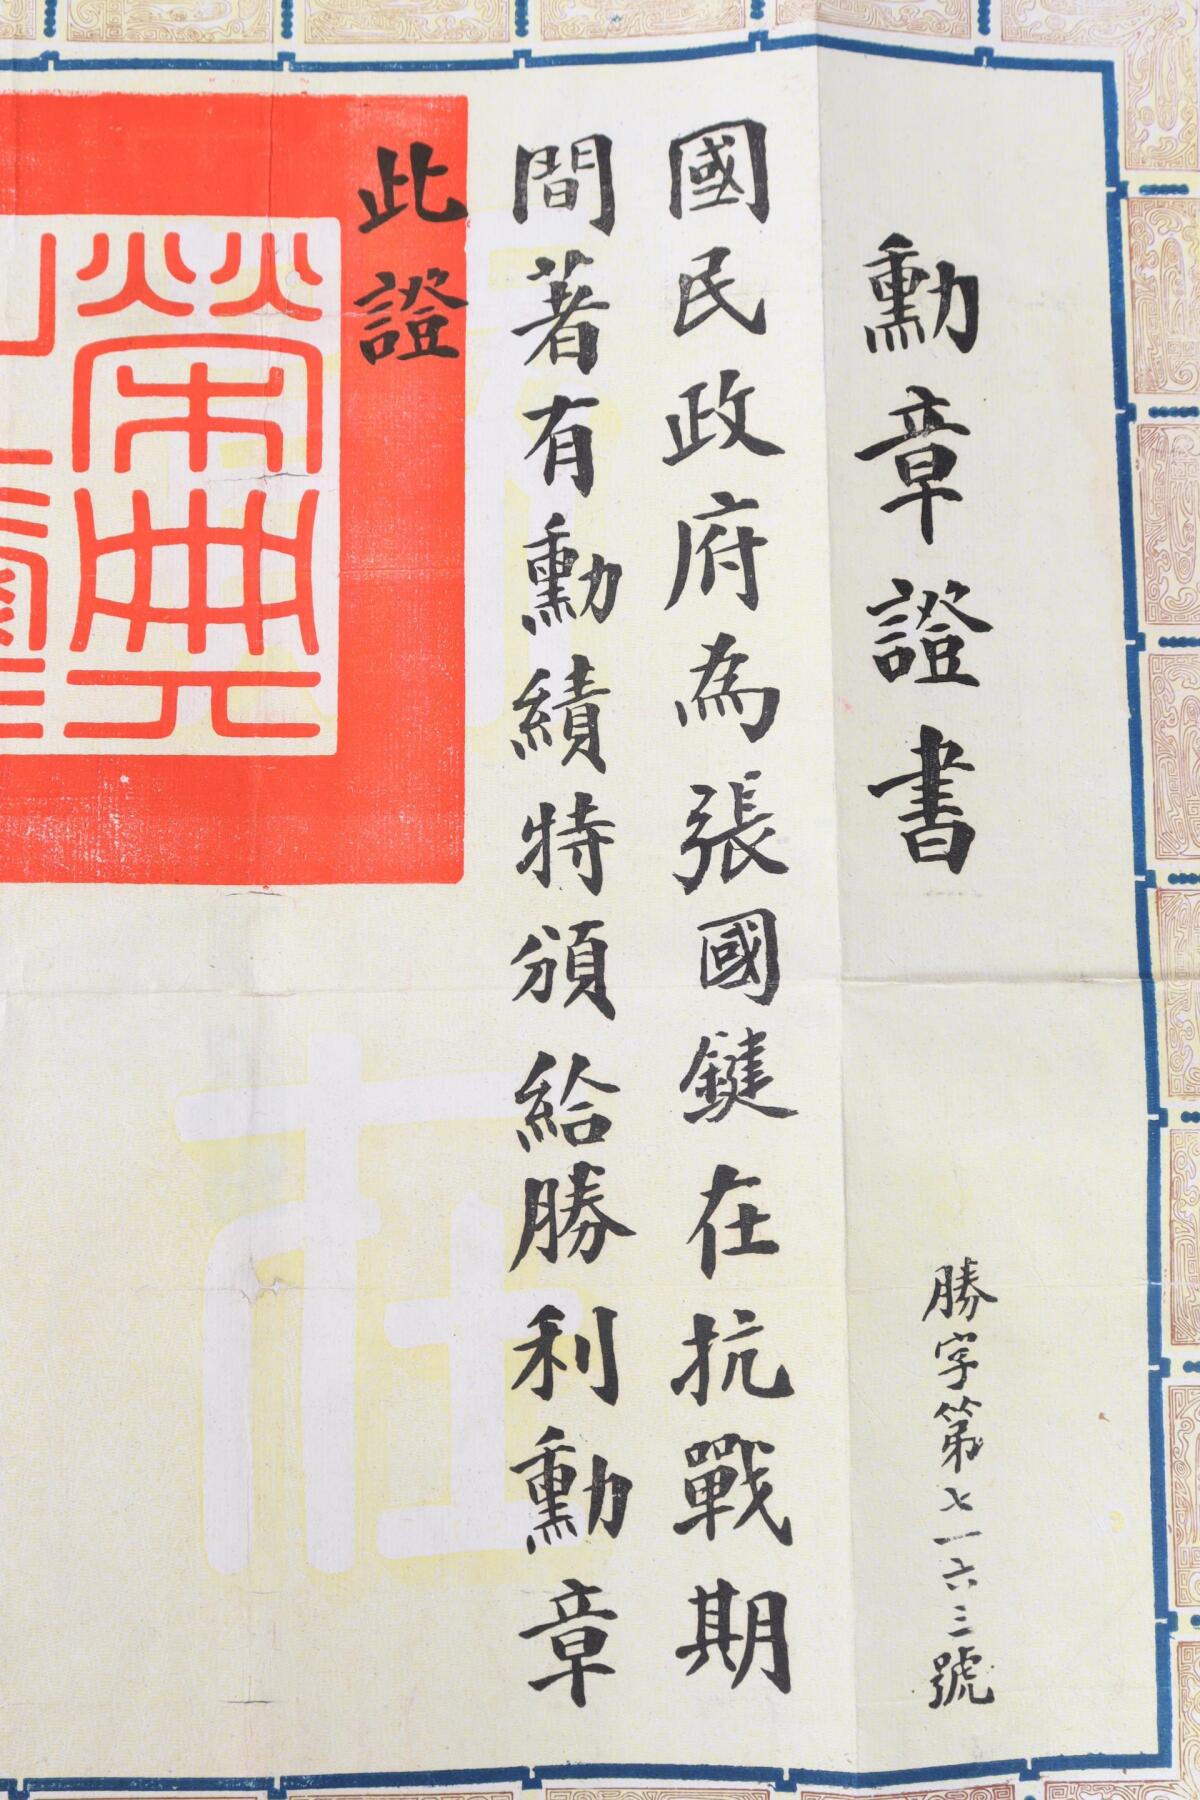 勳章證書
勝字第七一六三號
國民政府為張國鍵在抗戰期
間著有勳績特頒給勝利勳章
此證
榮典
在